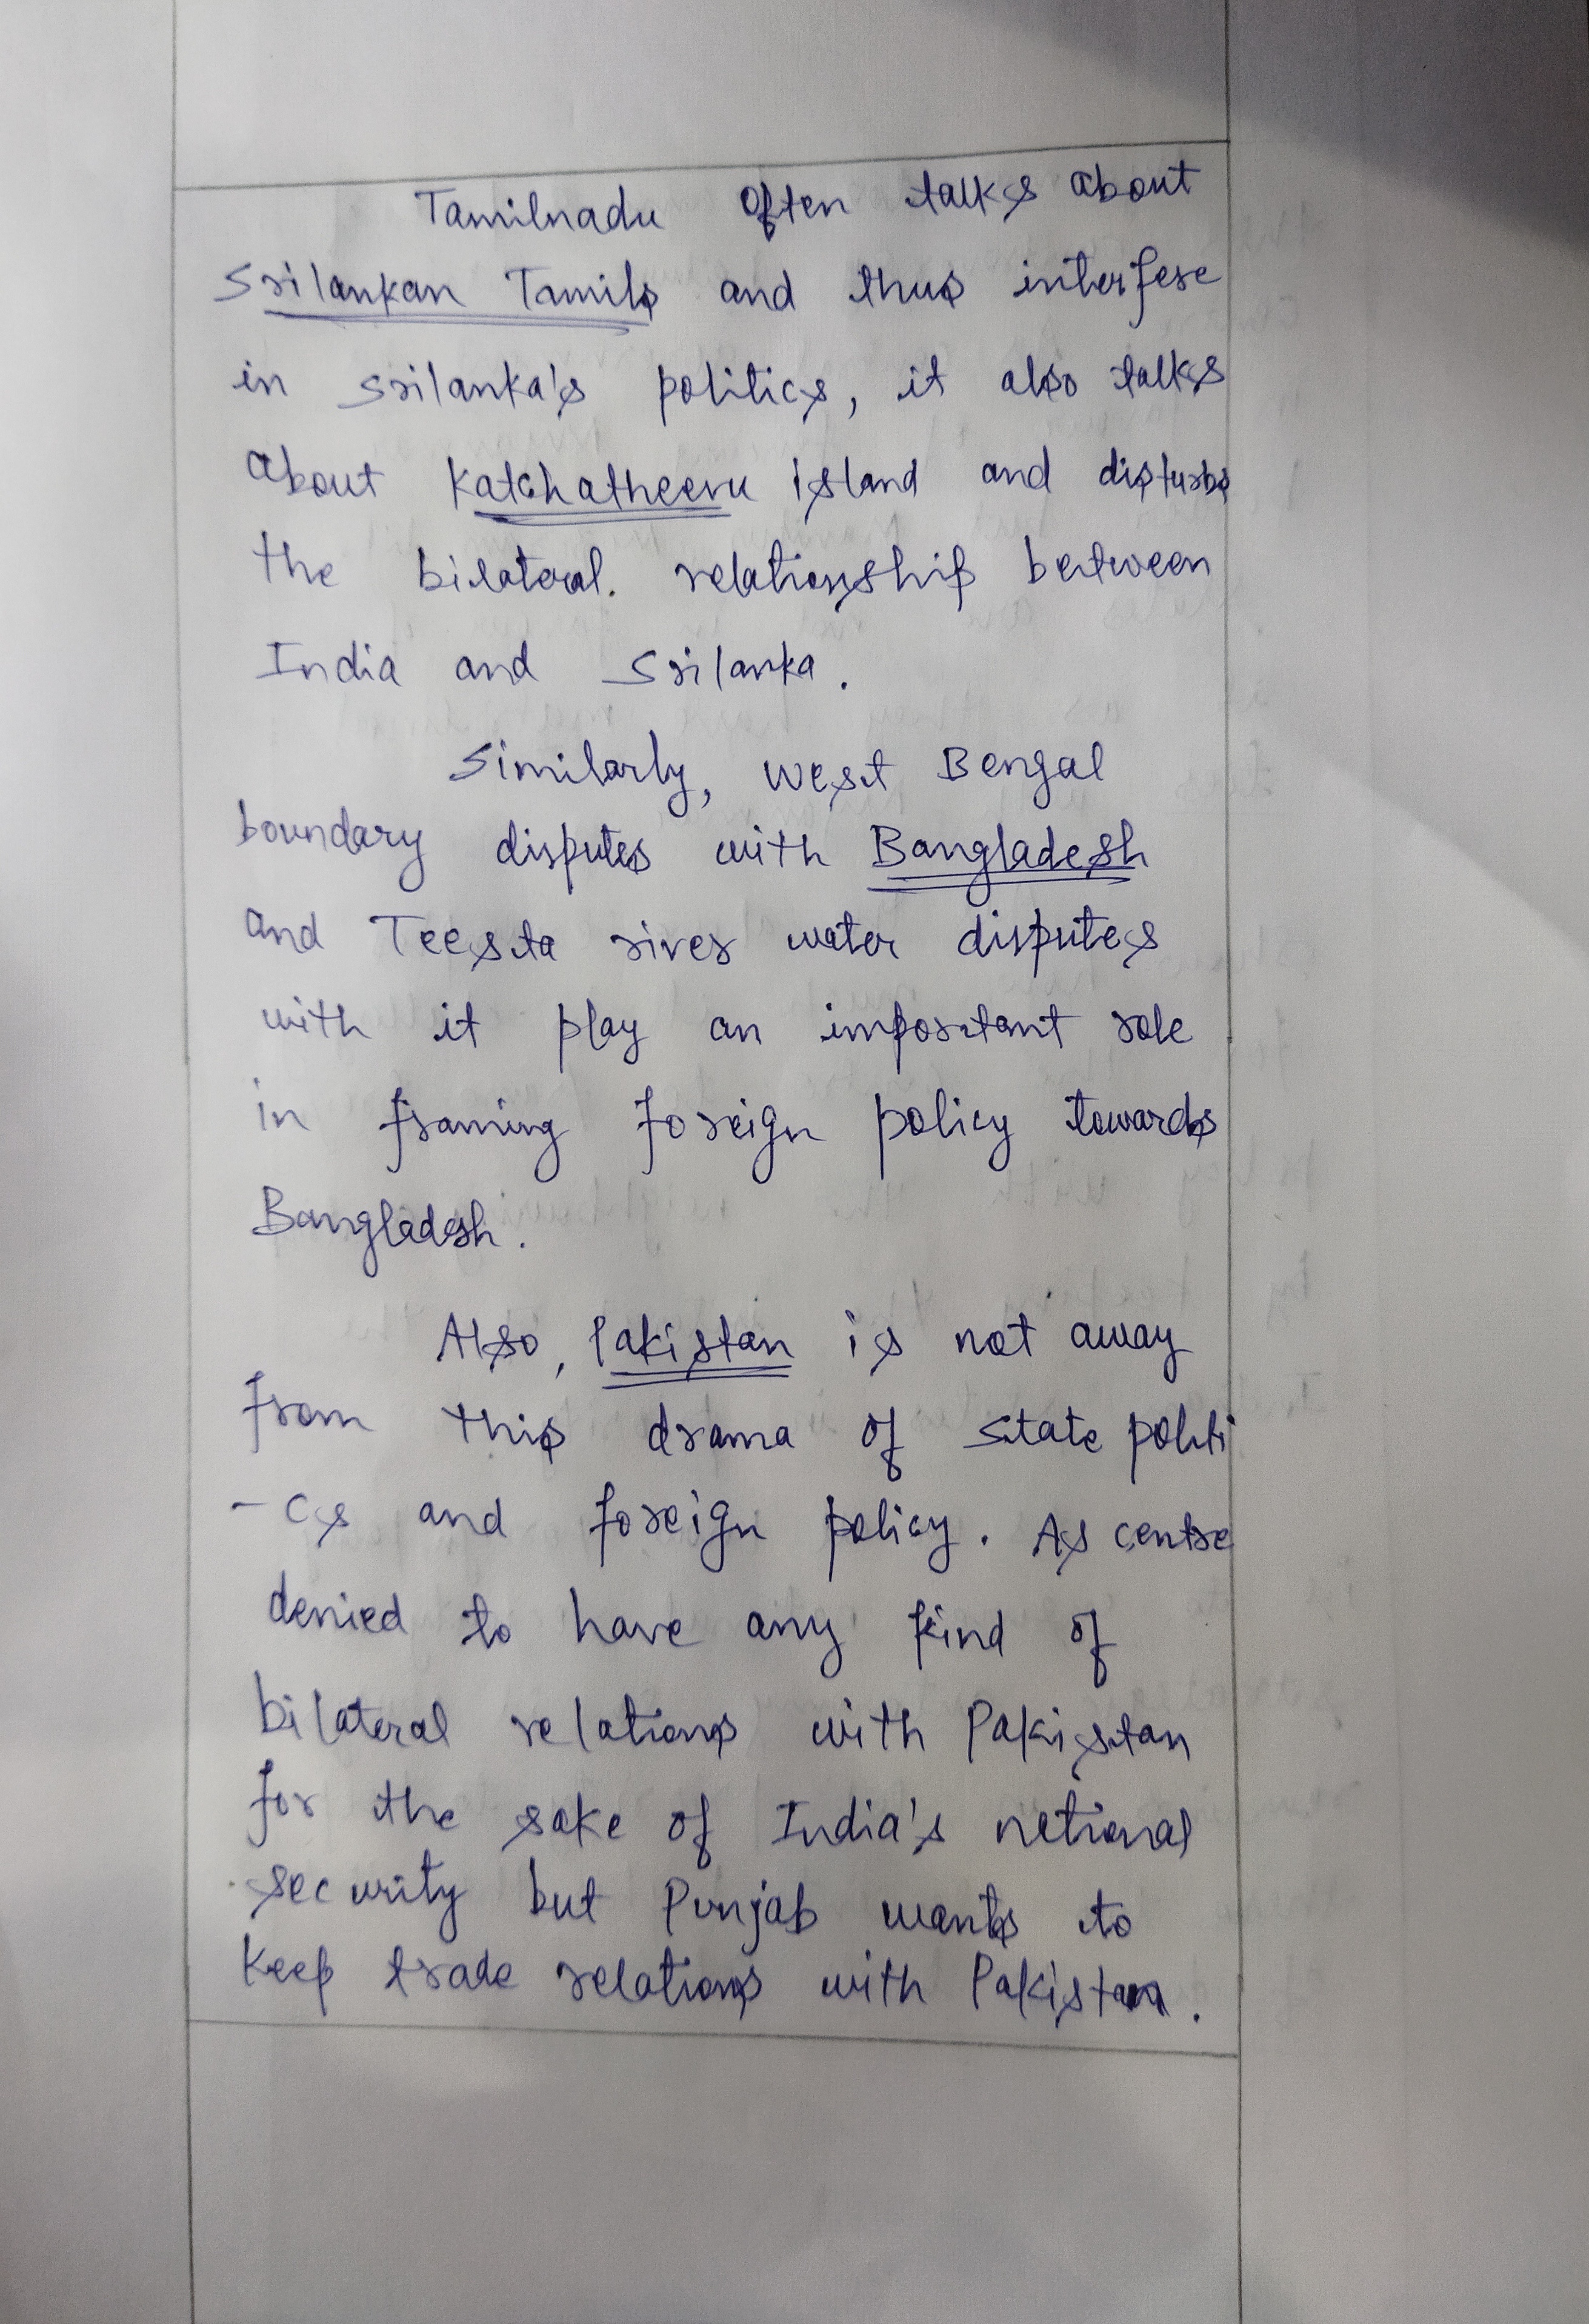 Tamilnadu often talks about
Srilankan Tamils and thus interfere
in srilanka's politics, it also talks
about Katchatheevu island and disturbs
the bilateral. relationship between
India and Srilanka.
Similarly, West Bengal
boundary disputes with Bangladesh
and Teesta river water disputes
with it play an important role
in framing foreign policy towards
Bangladesh.
Also, Pakistan is not away
from this drama of state politi
-cs and foreign policy. As centre
denied to have any kind of
bilateral relations with Pakistan
for the sake of India's netional
security but Punjab wants to
keep trade relations with Pakistan.